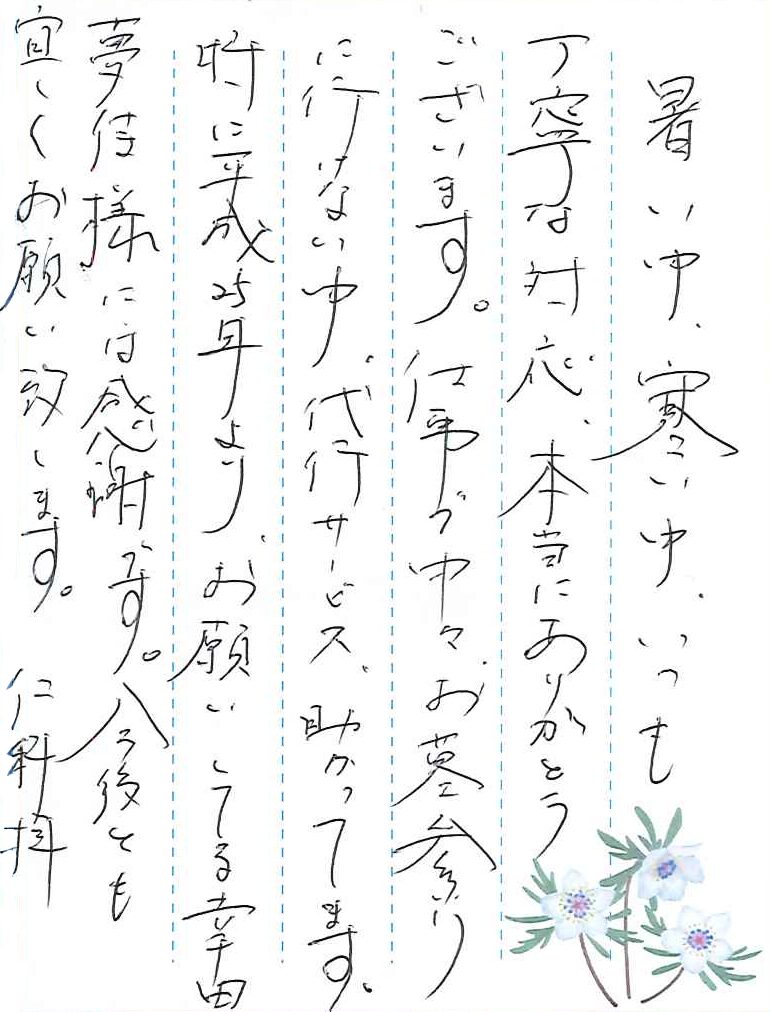 暑い中、寒い中、いつも
丁寧な対応、本当にありがとう
ございます。仕事で中々、お墓参り
に行けない中、代行サービス、助かってます。
特に平成25年より、お願いしてる幸田
夢侍様には感謝です。今後とも
宜しくお願い致します。仁科拝